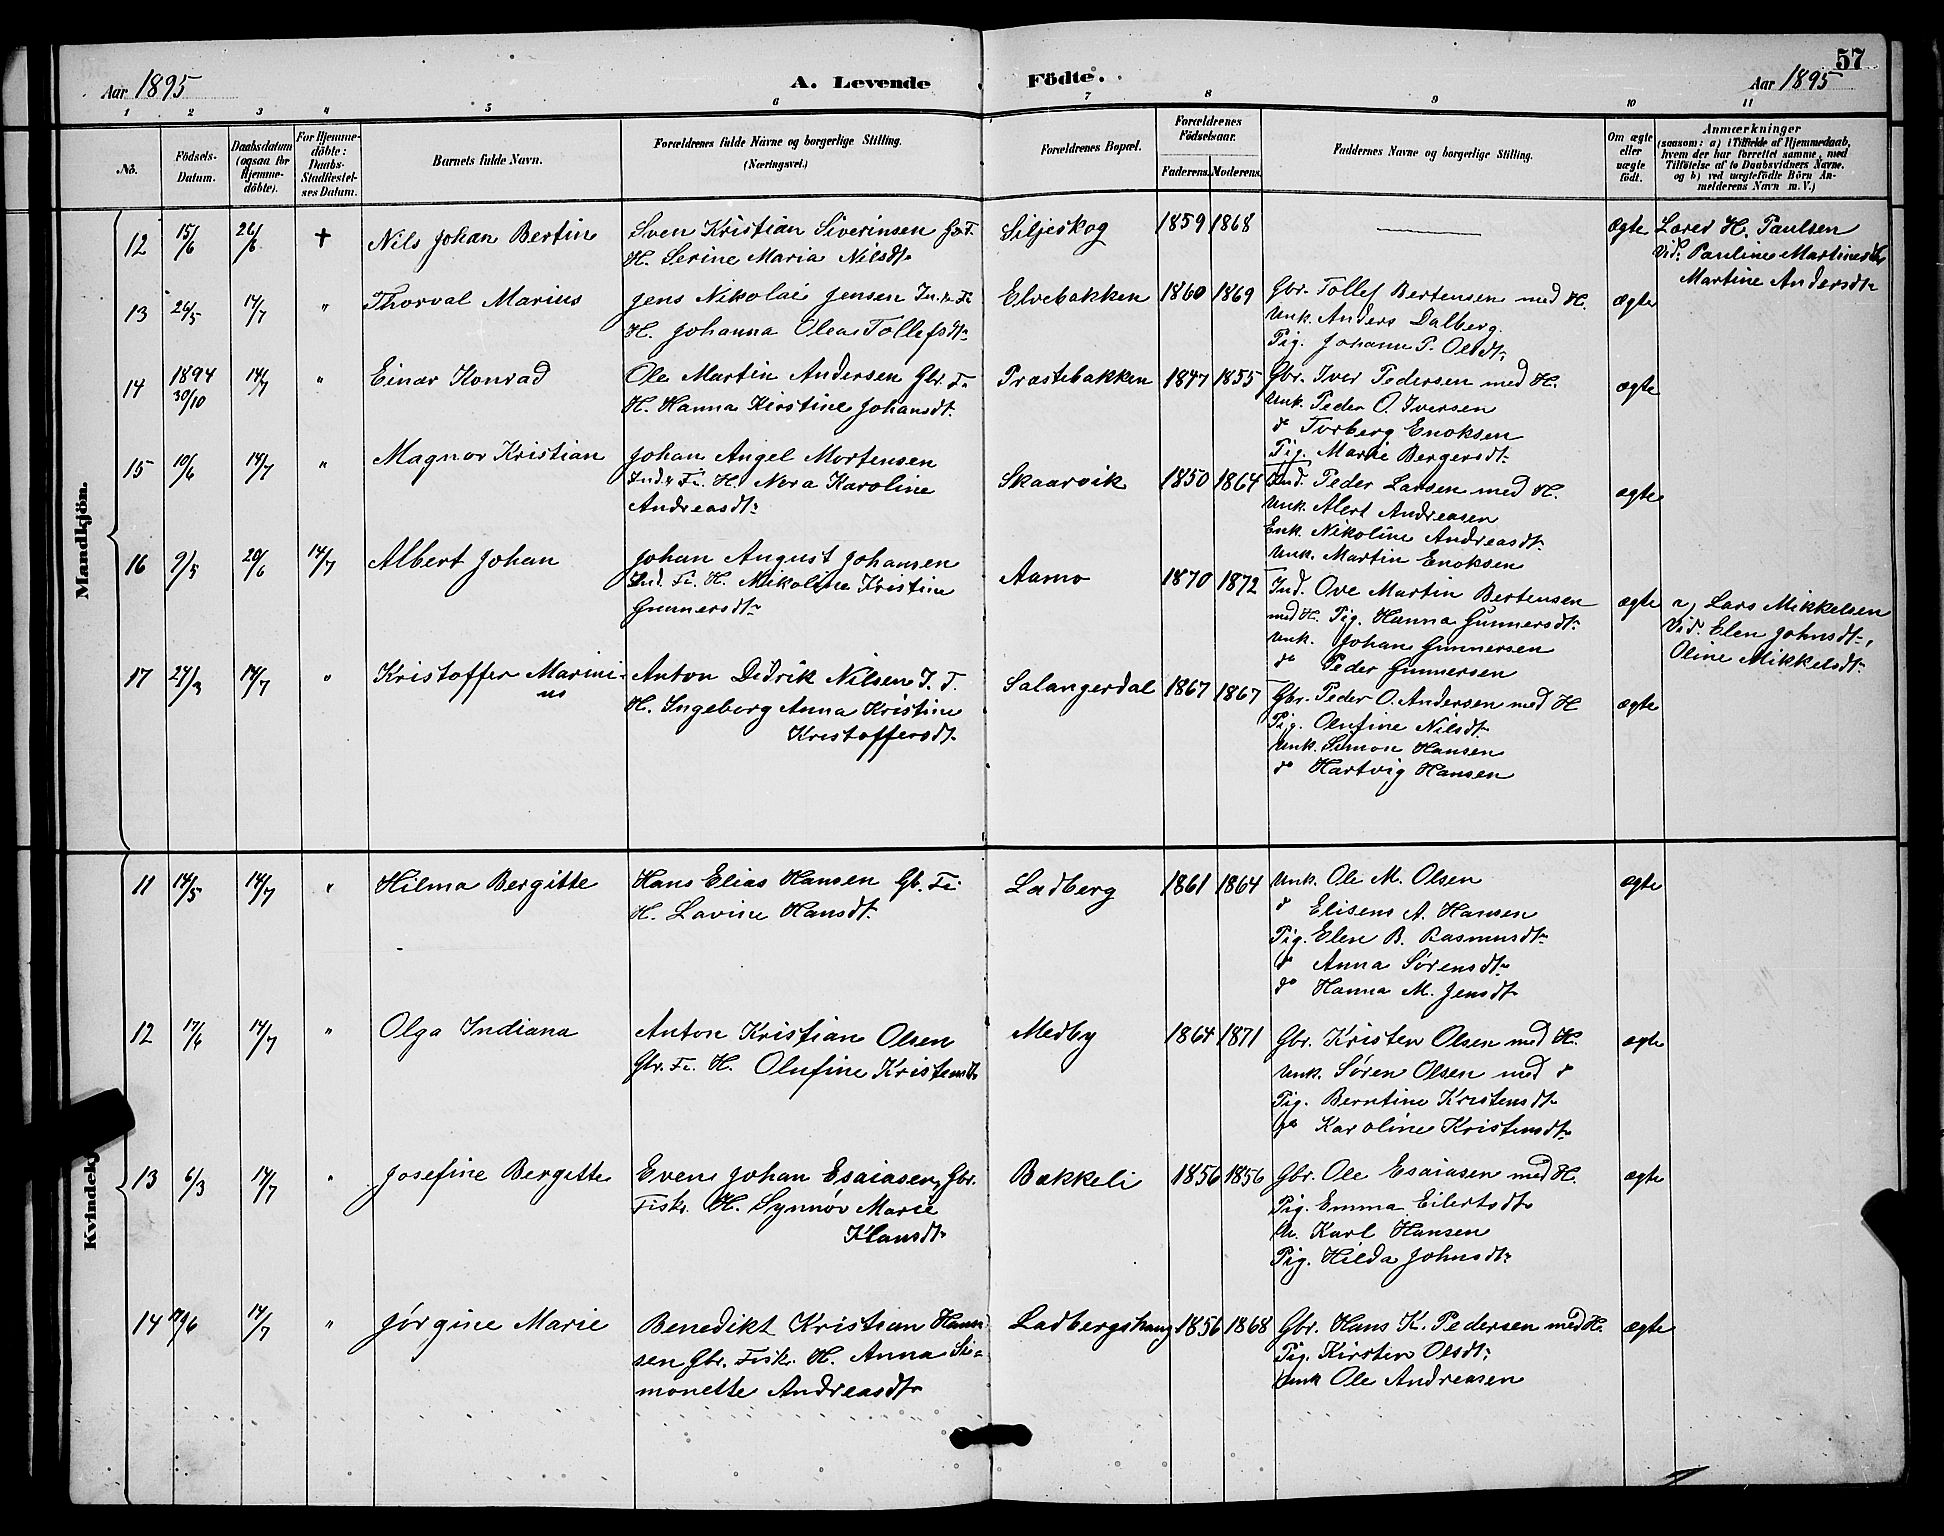 57
Aar 1895
A. Levende Födte.
Aar 1895
1 2 3 4 5 6 7 8 9 10 11
No.
Födsels-
Datum.
Daabsdatum
(ogsaa for
Hjemme-
döbte).
For Hjemme-
döbte:
Daabs-
Stadfæstel-
ses Datum.
Barnets fulde Navn.
Forældrenes fulde Navne og borgerlige Stilling.
(Næringsvei.)
Forældrenes Bopæl.
Forældrenes
Födselsaar.
Faderens. Moderens.
Faddernes Navne og borgerlige Stilling.
Om ægte
eller
uægte
födt.
Anmærkninger
(saasom: a) i Tilfælde af Hjemmedaab,
hvem der har forrettet samme, med
Tilföielse af to Daabsvidners Navne.
og b) ved uægtefödte Börn An-
melderens Navn m. V.)
Mandkjön.
12 15/6 26/6 † Nils Johan Bertin
Sven Kristian Siverinsen Gbr. F.
H. Serine Maria Nilsdtr
Siljeskog 1859 1868 — ægte
Lærer H. Paulsen
Vid: Pauline Martinesdtr
Martine Andersdtr
13 26/5 14/7 " Thorval Marius
Jens Nikolai Jensen In. & Fi
H. Johanna Olea Tollefsdtr
Elvebakken 1860 1869
Gbr. Tollef Bertensen med H.
Unk. Anders Dalberg.
Pig. Johanna P. Olsdtr
ægte
14 1894 30/10 14/7 " Einar Konrad
Ole Martin Andersen Gbr. Fi.
H. Hanna Kirstine Johansdtr
Præstebakken 1847 1855
Gbr. Iver Pedersen med H.
Unk. Peder O. Iversen
do Torberg Enoksen
Pig. Marie Bergersdtr
ægte
15 10/6 14/7 " Magnor Kristian
Johan Angel Mortensen
Ind. & Fi. H. Nora Karoline
Andreasdtr
Skaarvik 1850 1864
Ind. Peder Larsen med H.
Unk. Alert Andreasen
Enk. Nikoline Andreasdtr
Unk. Martin Enoksen
ægte
16 9/5 20/6 14/7 Albert Johan
Johan August Johansen
Ind. Fi. H. Nikoline Kristine
Gunnersdtr
Aamo 1870 1872
Ind. Ove Martin Bertensen
med H. Pig. Hanna Gunnersdtr
Unk. Johan Gunnersen
do Peder Gunnersen
ægte
Lars Mikkelsen
Vid. Elen Johnsdtr,
Oline Mikkelsdtr
17 27/3 14/7 " Kristoffer Marini-
us
Anton Didrik Nilsen I. F.
H. Ingeborg Anna Kristine
Kristoffersdtr
Salangerdal 1867 1867
Gbr. Peder O. Andersen med H
Pig. Olufine Nilsdtr
Unk. Simon Hansen
do Hartvig Hansen
ægte
Kvindekj
11 14/5 14/7 " Hilma Bergitte
Hans Elias Hansen Gb. Fi.
H. Lavine Hansdtr
Ladberg 1861 1864
Unk. Ole M. Olsen
do Elisens A. Hansen
Pig. Elen B. Rasmusdtr
do Anna Sørensdtr
do Hanna M. Jensdtr
ægte
12 17/6 14/7 " Olga Indiana
Anton Kristian Olsen
Gbr. Fi. H. Olufine Kristensdtr
Medby 1864 1871
Gbr. Kristen Olsen med H.
Unk. Søren Olsen med do
Pig. Berntine Kristensdtr
do Karoline Kristensdtr
ægte
13 6/3 14/7 " Josefine Bergitte
Even Johan Esaiasen, Gbr.
Fisk. H. Synnøv Marie
Klausdtr
Bakkeli 1856 1856
Gbr. Ole Esaiasen med H.
Pig. Emma Eilertsdtr
U. Karl Hansen
Pig. Hilda Johnsdtr
ægte
14 17/6 14/7 " Jørgine Marie
Benedikt Kristian Han-
sen Gbr. Fisk. H. Anna Si=
monette Andreasdtr
Ladbergshaug 1856 1868
Gbr. Hans K. Pedersen med H.
Pig. Kirstin Olsdtr
Unk Ole Andreasen
ægte